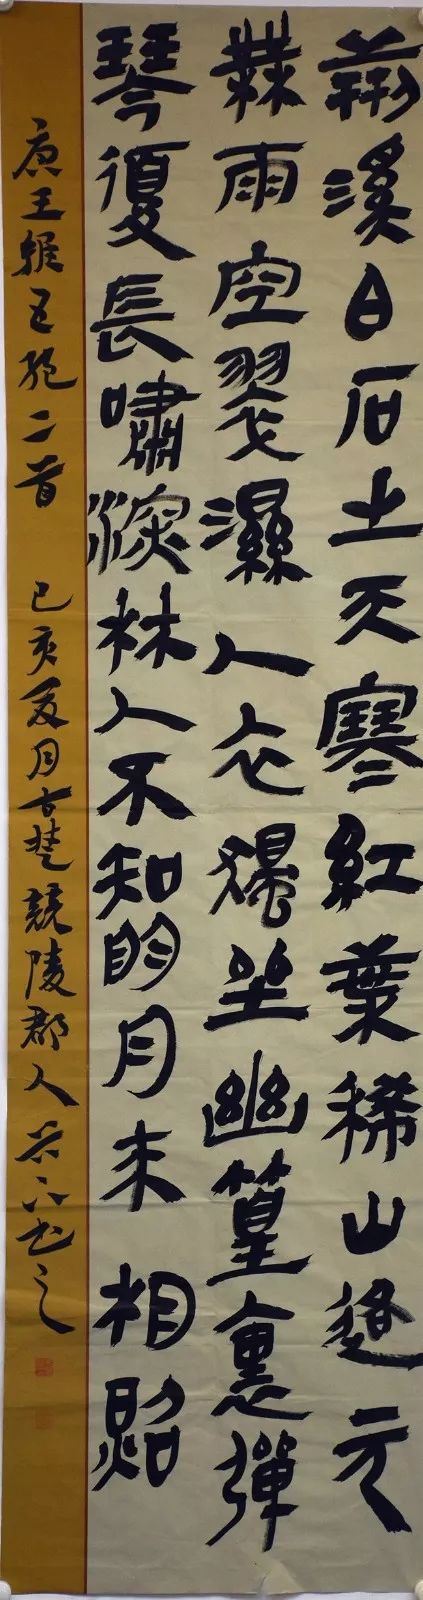 荊溪白石出天寒紅葉稀山逕元
無雨空翠濕人衣獨坐幽篁裏彈
琴復長嘯深林人不知明月来相照
唐王維五絕二首 己亥夏月古楚競陵郡人書之